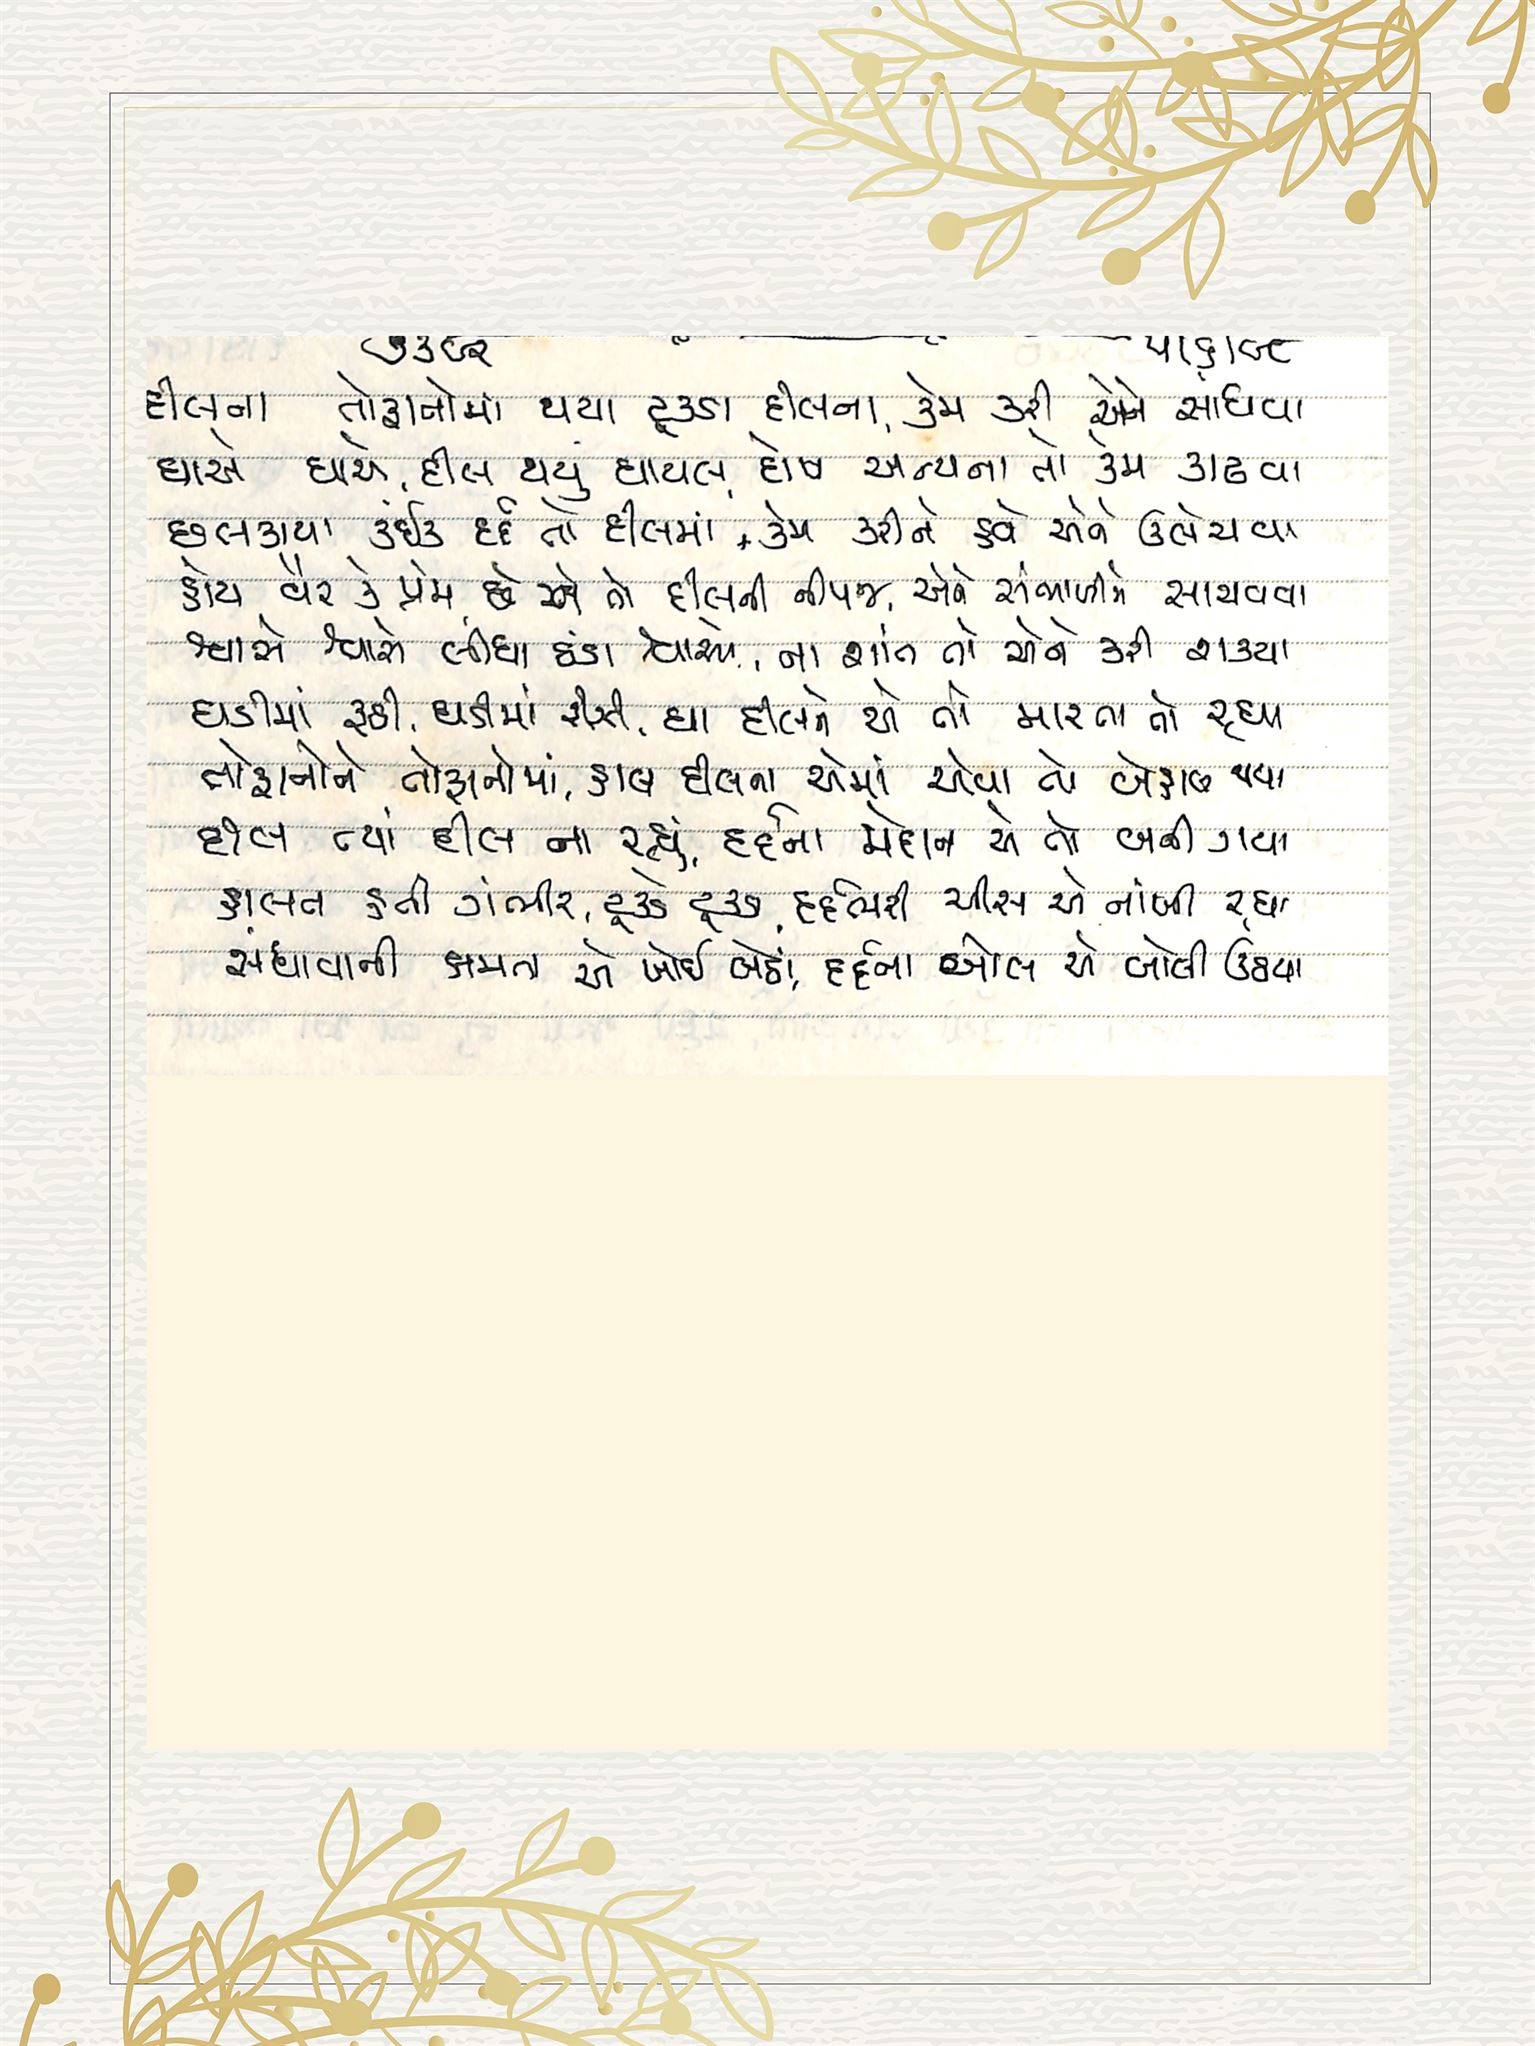 દીલના તોફાનોમાં થયા ટૂકડા દીલના, કેમ કરી એને સાંધવા
ઘાએ ઘાએ, દીલ થયું ઘાયલ, દોષ અન્યના તો કેમ કાઢવા
છલકાયા કંઈક દર્દ તો દીલમાં, કેમ કરીને હવે એને ઉલેચવા
હોય વૈર કે પ્રેમ, છે એ તો દીલની નીપજ, એને સંભાળીને સાચવવા
શ્વાસે શ્વાસે લીધા ઠંડા શ્વાસો, ના શાંત તો એને કરી શક્યા
ઘડીમાં રૂઠી, ઘડીમાં રીઝી, ઘા દીલને એ તો મારતા તો રહ્યા
તોફાનોને તોફાનોમાં, હાલ દીલના એમાં એવા તો બેહાલ થયા
દીલ ત્યાં દીલ ના રહ્યું, દર્દના મેદાન એ તો બની ગયા
હાલત હતી ગંભીર, ટૂકડે ટૂકડા, દર્દભરી ચીસ એ નાંખી રહ્યા
સંધાવાની ક્ષમતા એ ખોઈ બેઠાં, દર્દના બોલ એ બોલી ઉઠયા